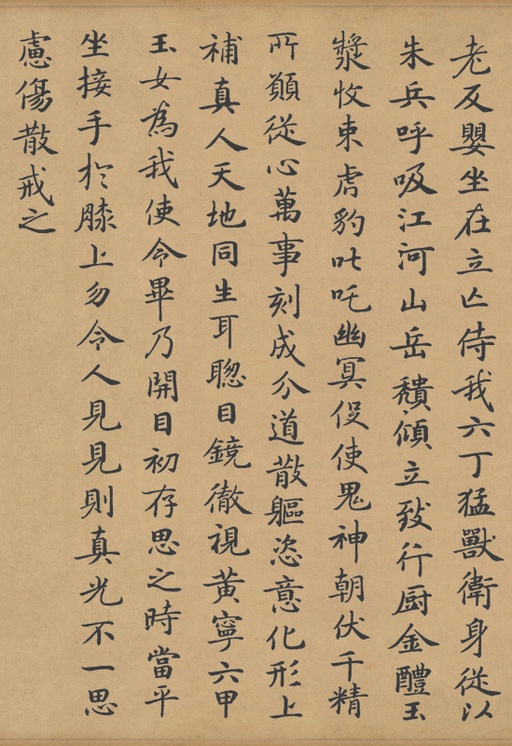 老反嬰坐在立亡侍我六丁猛獸衛身從以
朱兵呼吸江河山岳穨傾立致行厨金醴玉
漿收束虎豹叱吒幽冥役使鬼神朝伏千精
所願從心萬事刻成分道散軀恣意化形上
補真人天地同生耳聰目鏡徹視黃寧六甲
玉女為我使令畢乃開目初存思之時當平
坐接手於膝上勿令人見見則真光不一思
慮傷散戒之